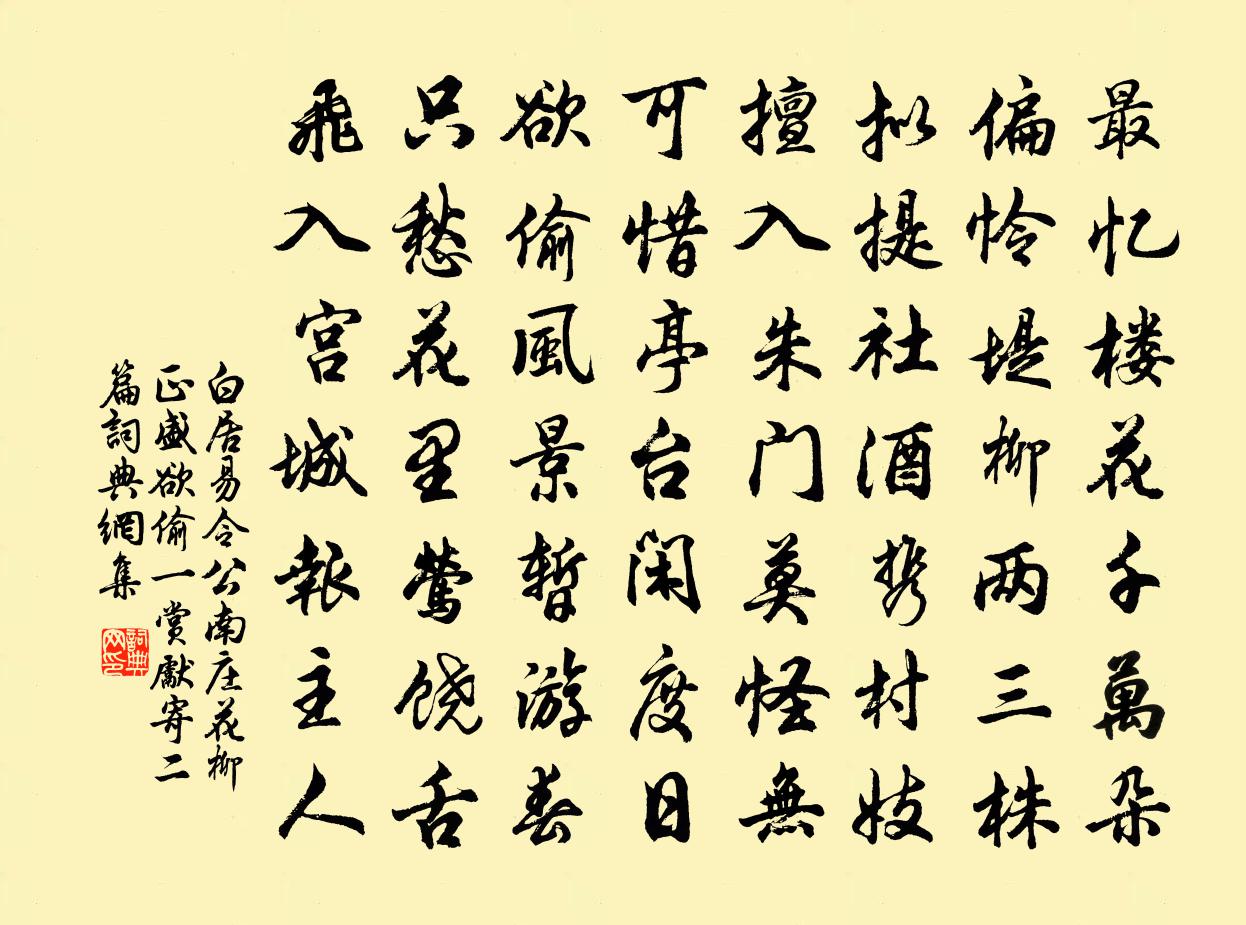 最忆楼花千萬朵
偏怜堤柳两三株
拟提社酒携村妓
擅入朱门莫怪無
可惜亭台闲度日
欲偷風景暫游春
只愁花里莺饶舌
飛入宫城報主人
白居易令公南庄花柳
正盛欲偷一赏獻寄二
篇詞典網集
詞典网印